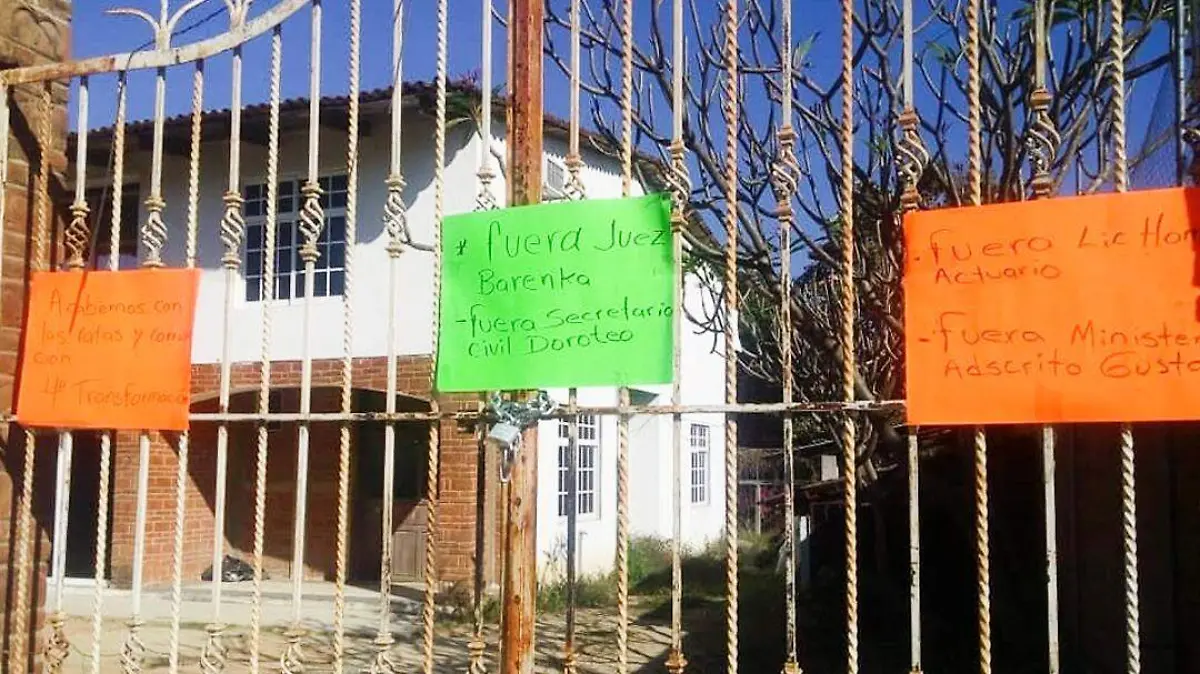 Acabemos con
las ratas y
con
4ª Transformación
* fuera Juez
Barenka
- fuera Secretario
Civil Doroteo
- fuera Lic
Actuario
- fuera Minister
Adscrito Gusta